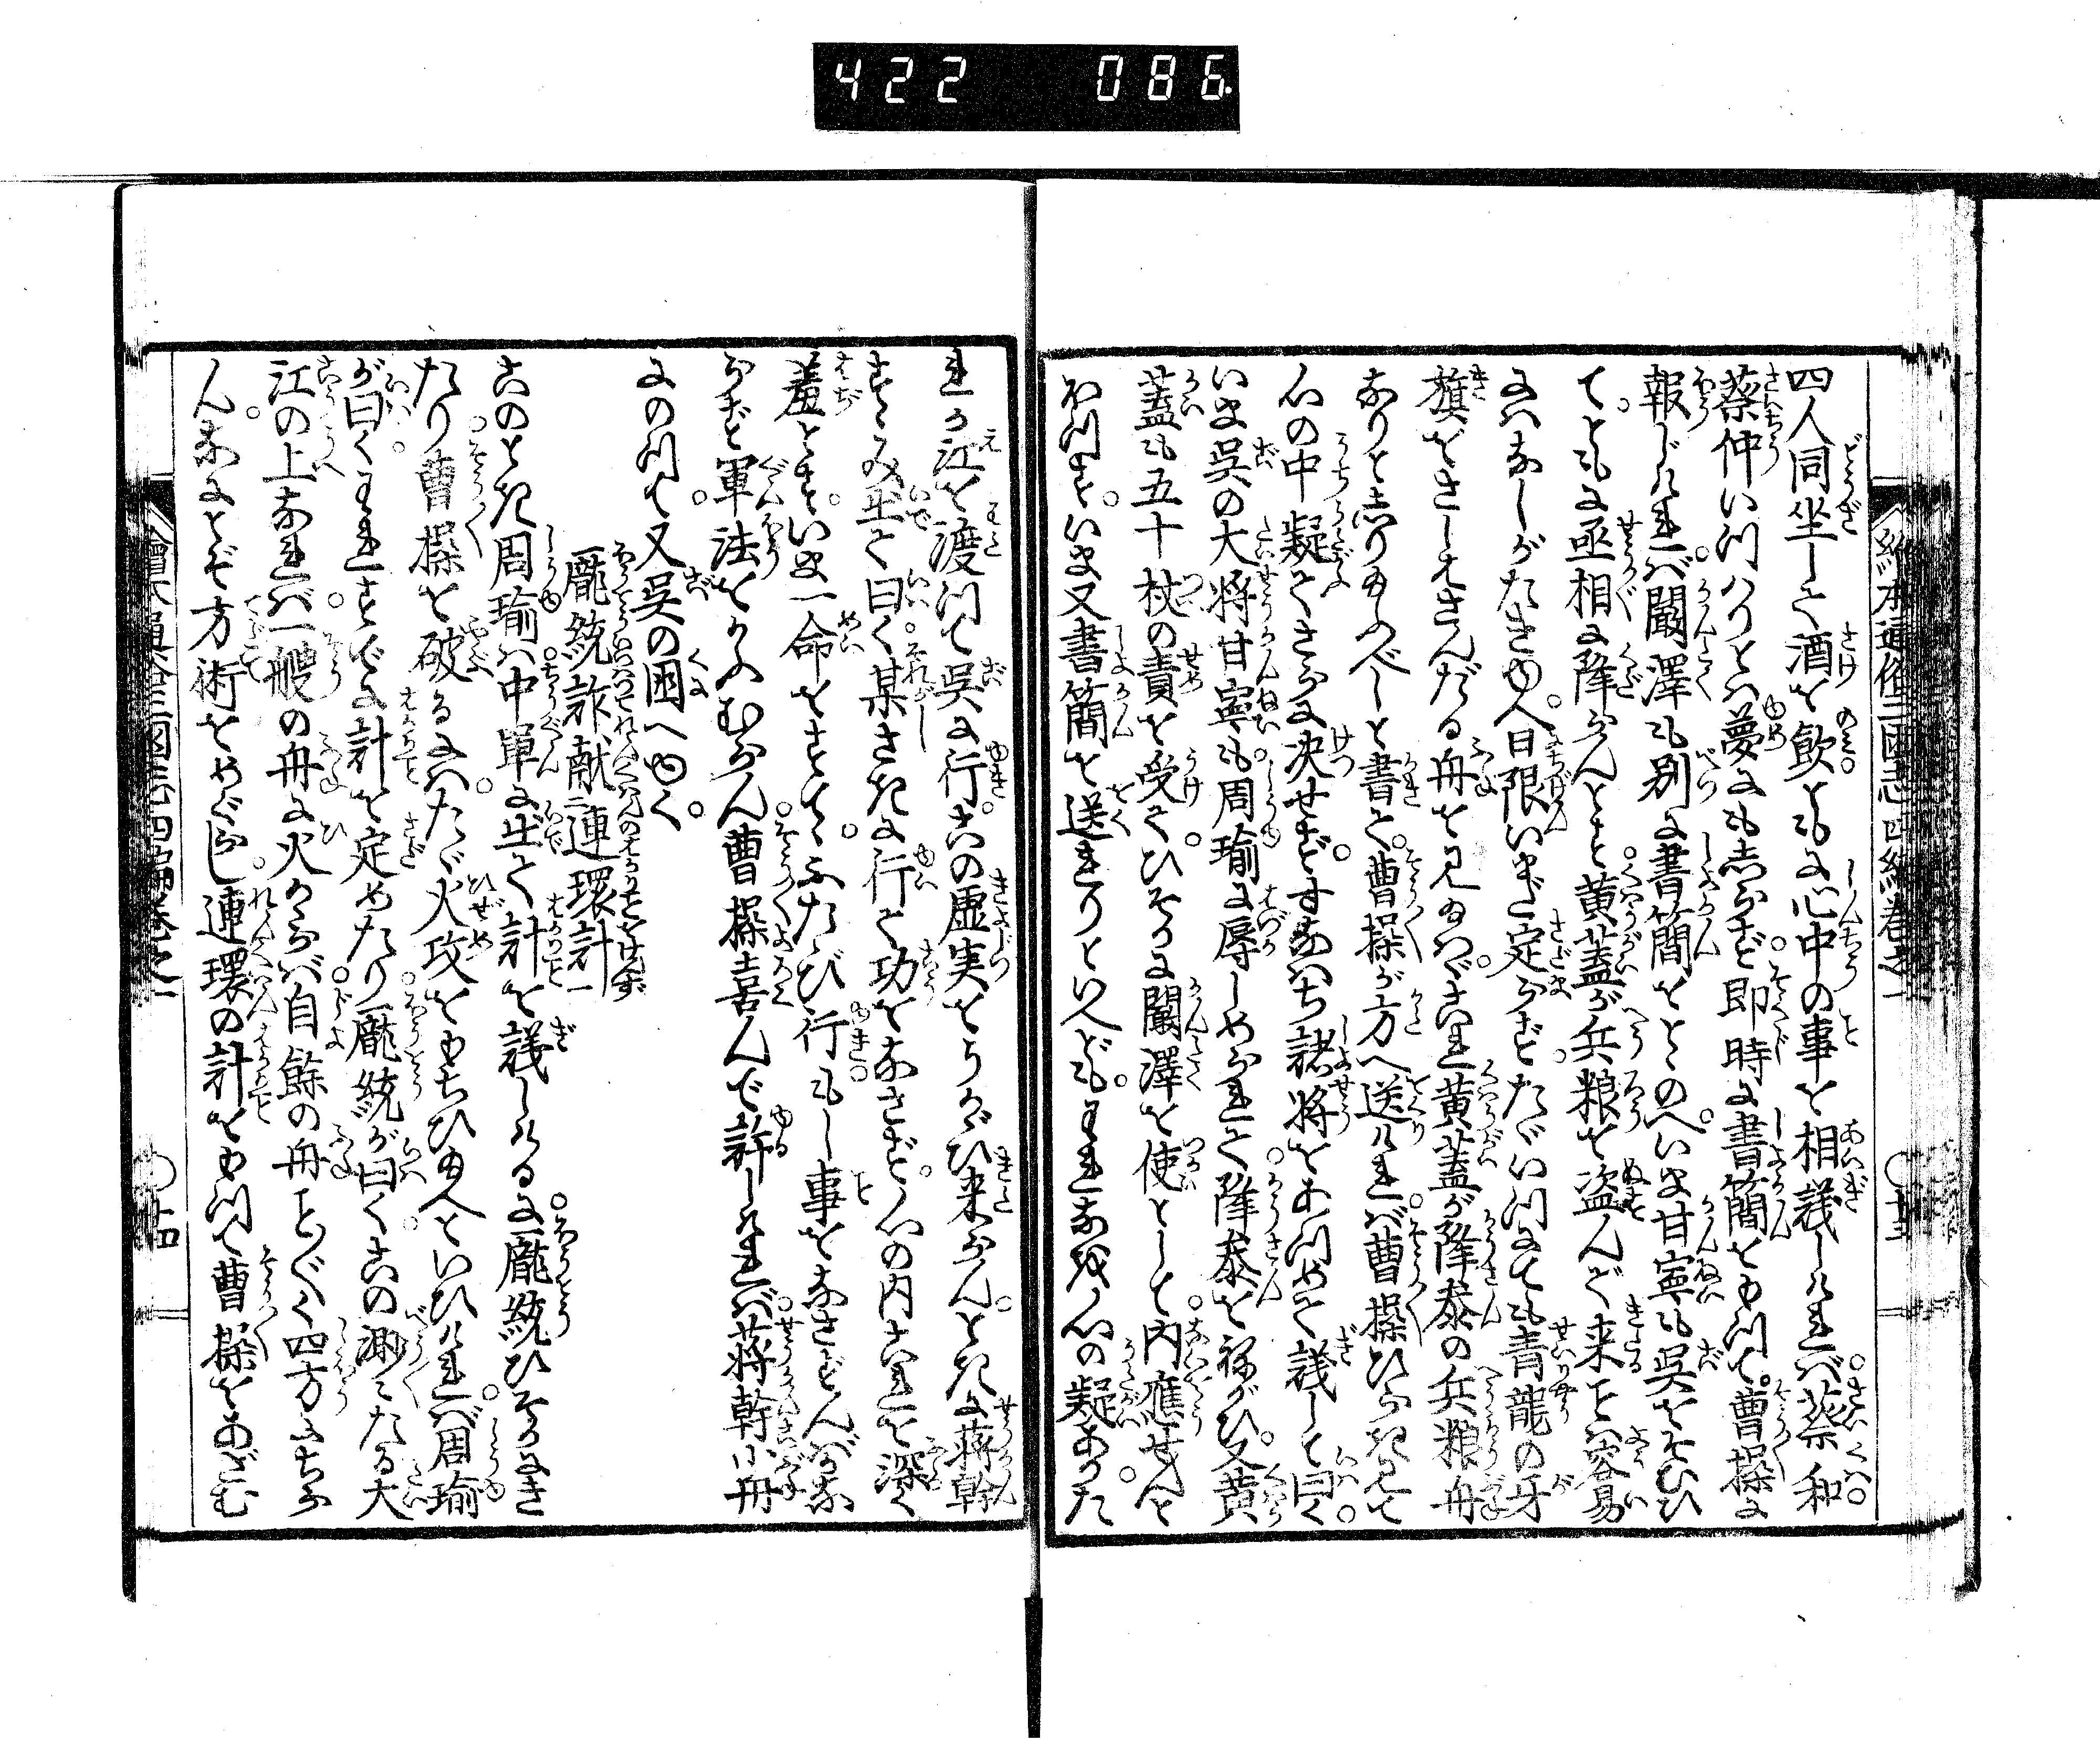 422 086
繪本通俗三國志四編巻之一 ○十三
四人同坐して酒を飲ともに心中の事を相議しければ。蔡和
蔡仲いつはりとは夢にも志らず。即時に書簡をもつて。曹操に
報じければ。闞澤も別に書簡をとゝのへ。いま甘寧も呉をそむひ
て。ともに丞相に降らんとす。黄蓋が兵粮を盗んで来ることは容易
にはなしがたきゆへ。日限いまだ定らず。たゞいつにても青龍の牙
旗をさしはさんだる舟を見給はゞ。これ黄蓋が降参の兵粮舟
なりと志り給ふべしと書て。曹操が方へ送ければ。曹操ひらき見て
心の中疑てさらに決せず。すなはち諸将をあつめて議して曰く。
いま呉の大将甘寧も。周瑜に辱しめられて。降参を祢がひ。又黄
蓋も五十杖の責を受て。ひそかに闞澤を使として。内應せんと
ほつす。いま又書簡を送れりといへども。われなを心の疑あり。た
れか江を渡つて呉に行。この虚実をうかゞひ来らん。ときに蒋幹
すゝみ出て曰く。某さきに行て功をなさず。心の内これを深く
羞とす。いま一命をすてゝ。ふたゝび行もし事をなさずんばかな
らず軍法をかふむらん。曹操喜んで許しければ。蒋幹小舟
にのつて。又呉の国へゆく。
龐統詐献連環計
このとき周瑜は。中軍に出て計を議しけるに。龐統ひそかにき
たり。曹操を破るには。たゞ火攻をもちひ給へといひければ。周瑜
が曰く。われすでに計を定めたり。龐統が曰く。この渺々たる大
江の上なれば。一艘の舟に火かゝらば。自餘の舟ことごとく四方にちら
ん。なにとぞ方術をめぐらし。連環の計をもつて曹操をあざむ
繪本通俗三國志四編巻之一 ○十四